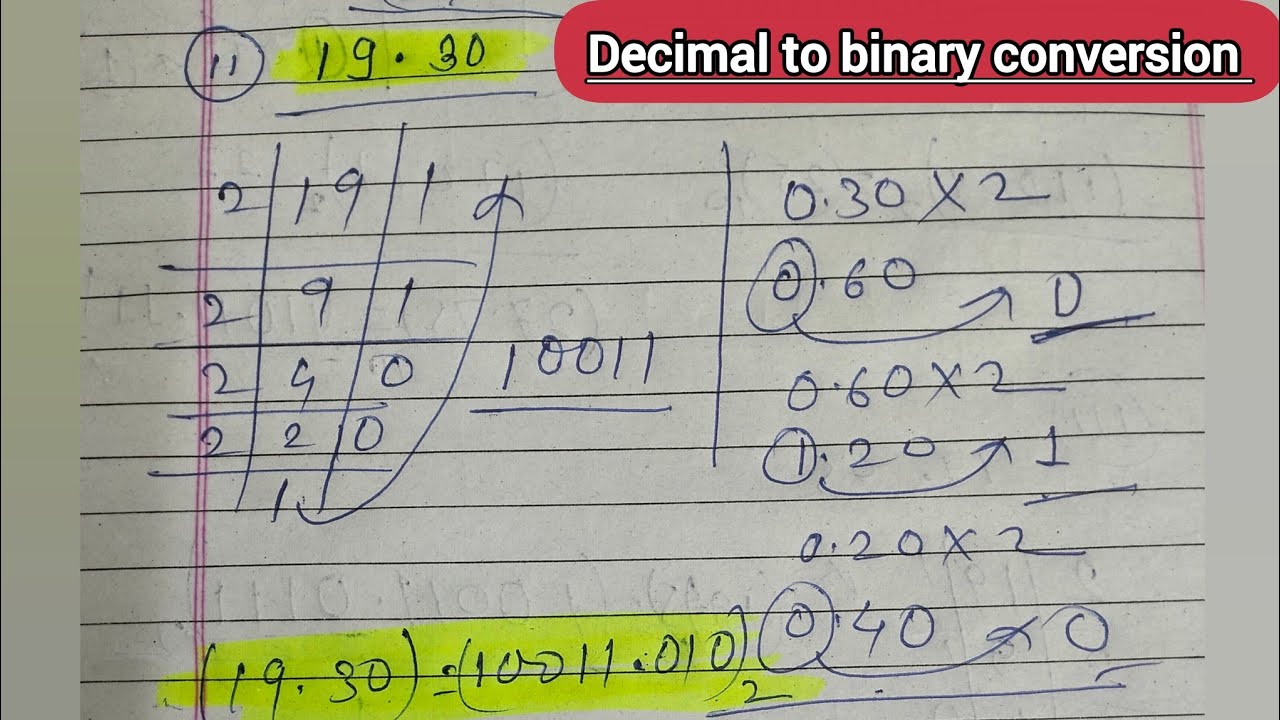 Decimal to binary conversion
11 19.30
2 19 1
2 9 1
2 4 0
2 2 0
1
10011
0.30 X 2
0.60 → 0
0.60 X 2
1.20 → 1
0.20 X 2
0.40 → 0
(19.30) = (10011.010)2